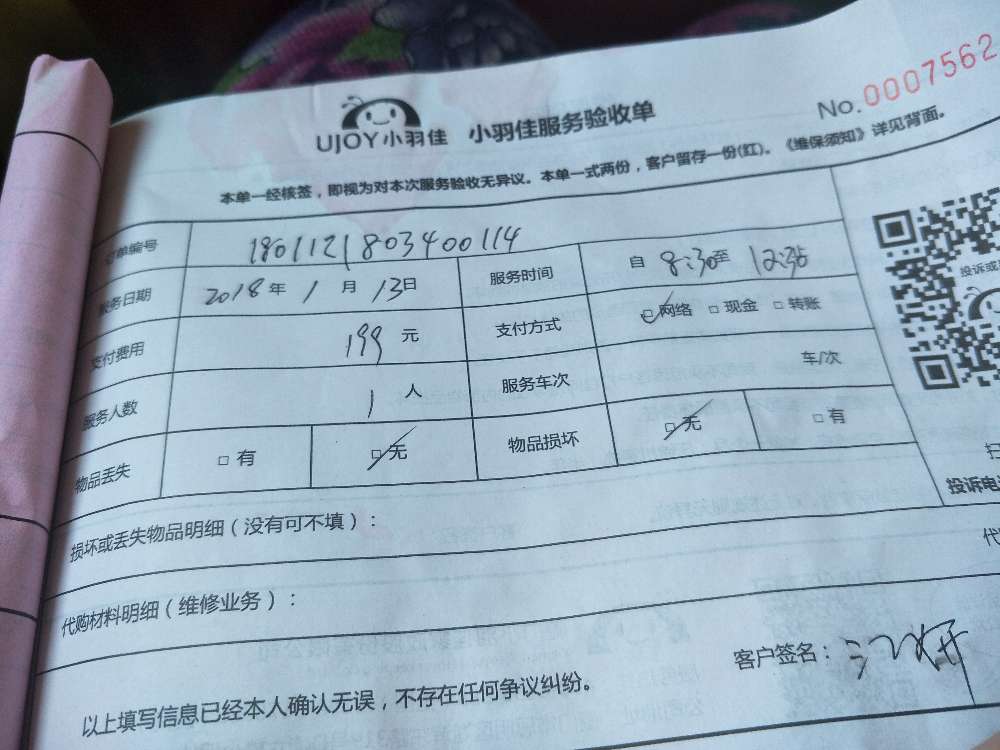 UJOY小羽佳 小羽佳服务验收单
No.0007562
本单一经核签，即视为对本次服务验收无异议。本单一式两份，客户留存一份(红)。《维保须知》详见背面。
订单编号 1801121803400114
服务日期 2018年1月13日 服务时间 自8:30至12:30
支付费用 199元 支付方式 □网络 □现金 □转账
服务人数 1人 服务车次 车/次
物品丢失 □有 □无 物品损坏 □无 □有
投诉或
扫
投诉电
损坏或丢失物品明细（没有可不填）：
代购材料明细（维修业务）：
代
以上填写信息已经本人确认无误，不存在任何争议纠纷。
客户签名：